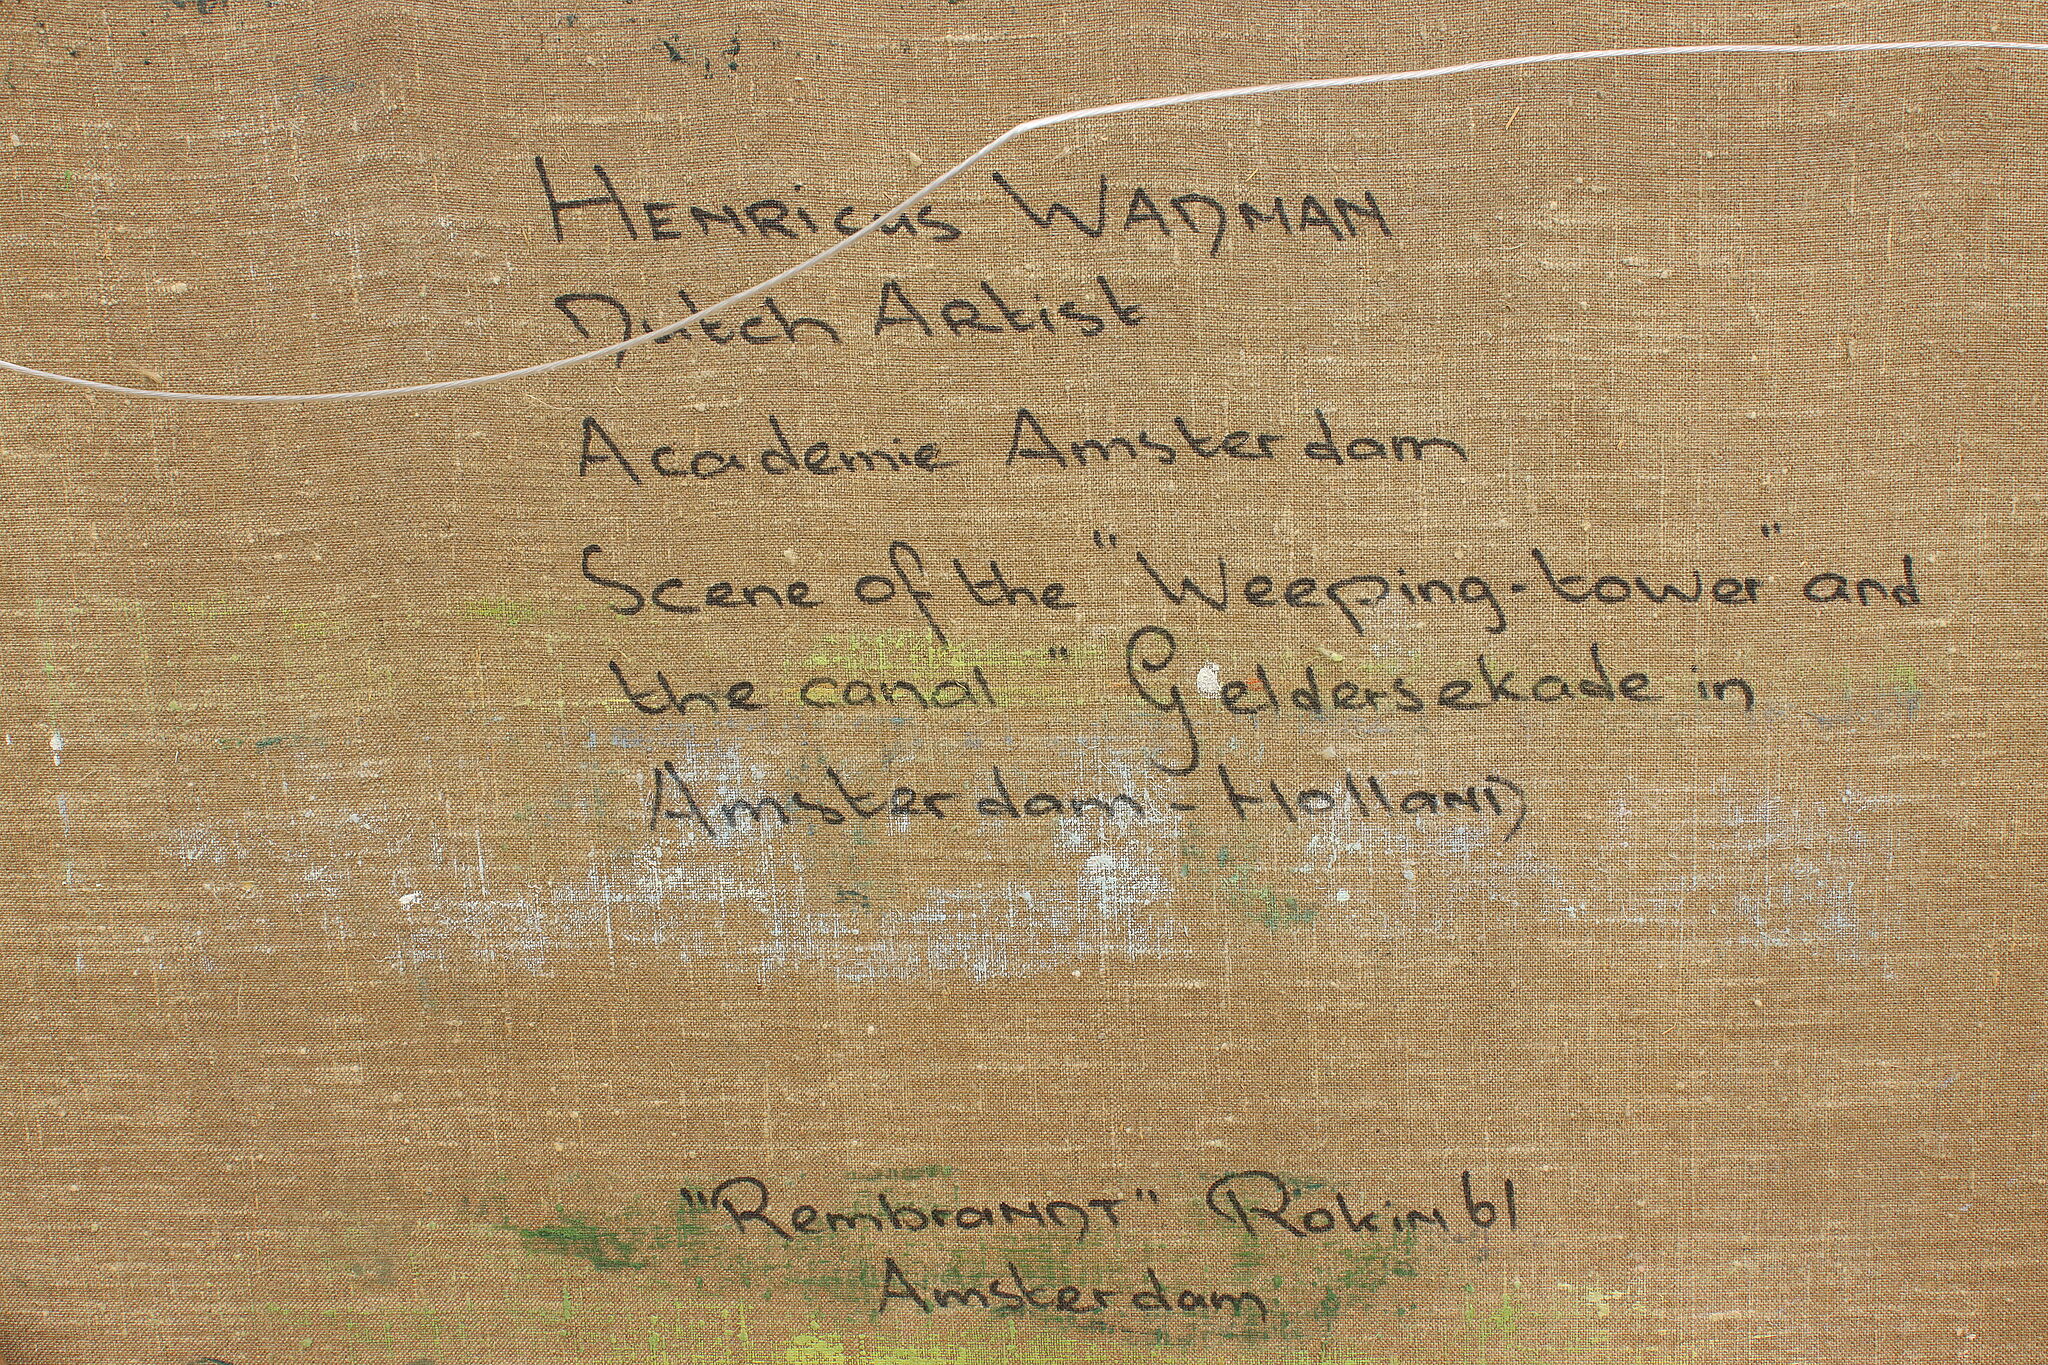 Henricus Wadman
Dutch Artist
Academie Amsterdam
Scene of the "Weeping-tower" and
the canal " Geldersekade in
Amsterdam - Holland
"Rembrandt" Rokin 61
Amsterdam